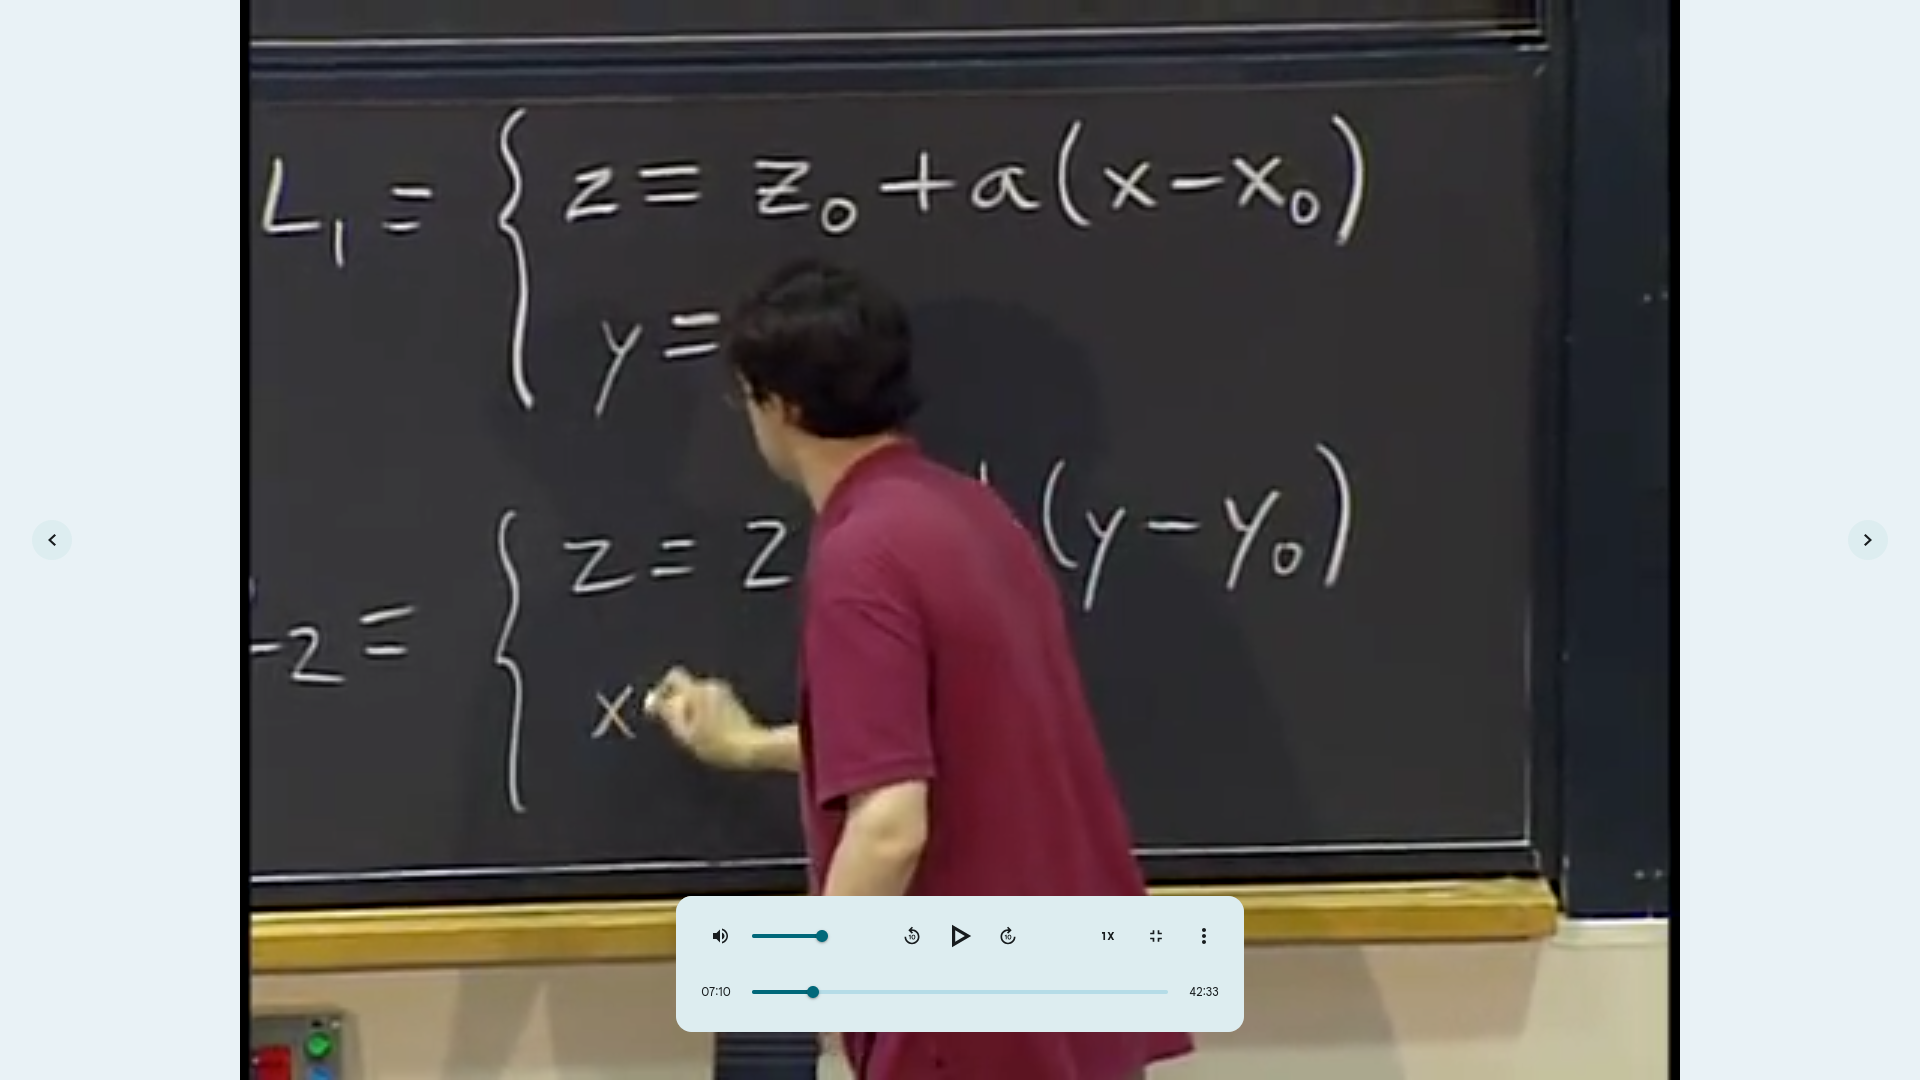 L₁ = { z = z₀ + a(x-x₀)
y =
-2 = { z = z (y - y₀)
x
10 10 1X
07:10 42:33